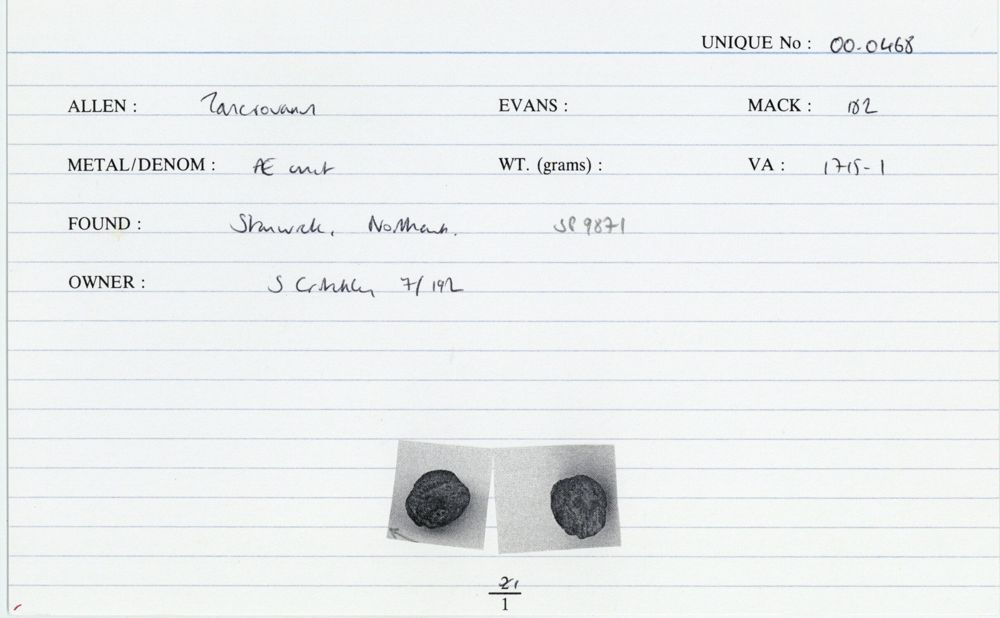 UNIQUE No : 00-0468
ALLEN : Tasciovanus EVANS : MACK : 182
METAL/DENOM : Æ unit WT. (grams) : VA : 1715-1
FOUND : Stanwick, Northants. SP 9871
OWNER : S Critchley 7/192
21
1